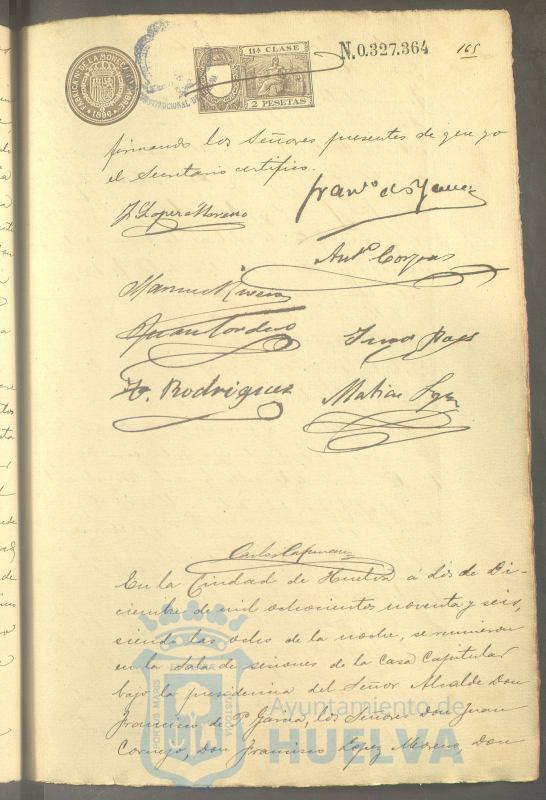 11ª CLASE
N.0.327.364
165
FABRICA N. DE LA MONEDA Y TIMBRE
1896
2 PESETAS
firmando los Señores presentes de que yo
el Secretario certifico.
F. Lopez Moreno
Manuel Rivera
Juan Cordero
F. Rodriguez
Matias
En la Ciudad de Huelva á dos de Di-
ciembre de mil ochocientos noventa y seis,
siendo las ocho de la noche, se reunieron
en la Sala de sesiones de la Casa Capitular
bajo la presidencia del Señor Alcalde Don
Francisco de P. Garcia, los Señores Don Juan
Cornejo, Don Francisco Lopez Moreno, Don
PORTUS MARIS
Ayuntamiento de
HUELVA